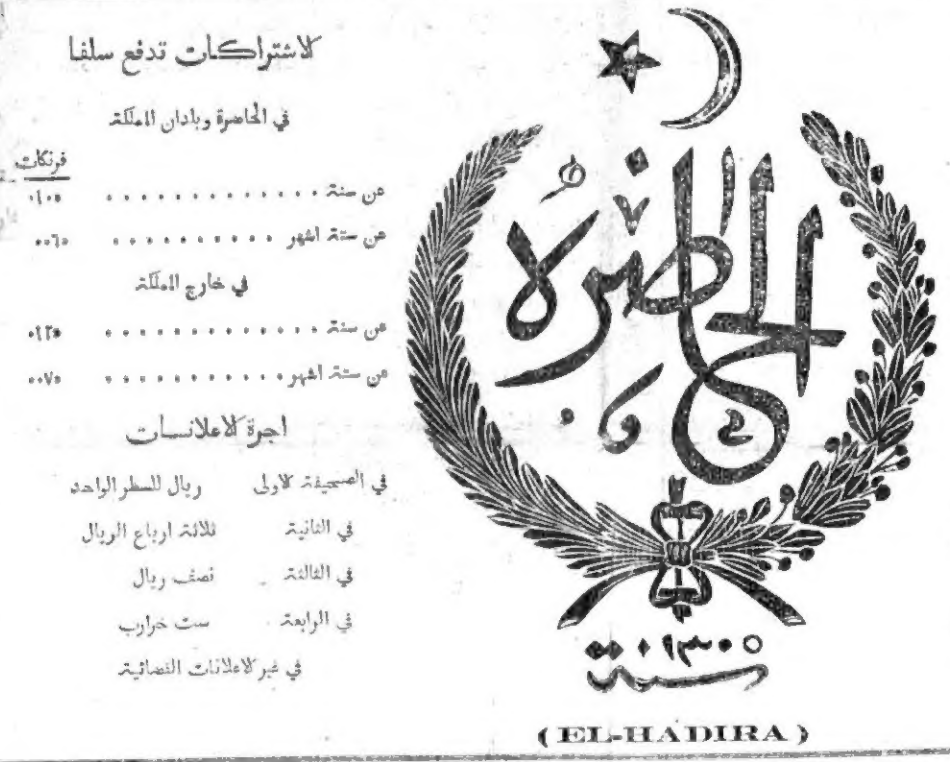 الاشتراكات تدفع سلفا
في الحاضرة وبلدان المملكة
فرنكات
عن سنة . . . . . . . . . . . . . ٠١٠٥
عن ستة اشهر . . . . . . . . . . ٠٠٦٥
في خارج المملكة
عن سنة . . . . . . . . . . . . . ٠١٢٥
عن ستة اشهر . . . . . . . . . . . ٠٠٧٥
اجرة الاعلانات
في الصحيفة الاولى ريال للسطر الواحد
في الثانية ثلاثة ارباع الريال
في الثالثة نصف ريال
في الرابعة ست خرارب
في غير الاعلانات القضائية
الحاضرة
سنة
(EL-HADIRA)